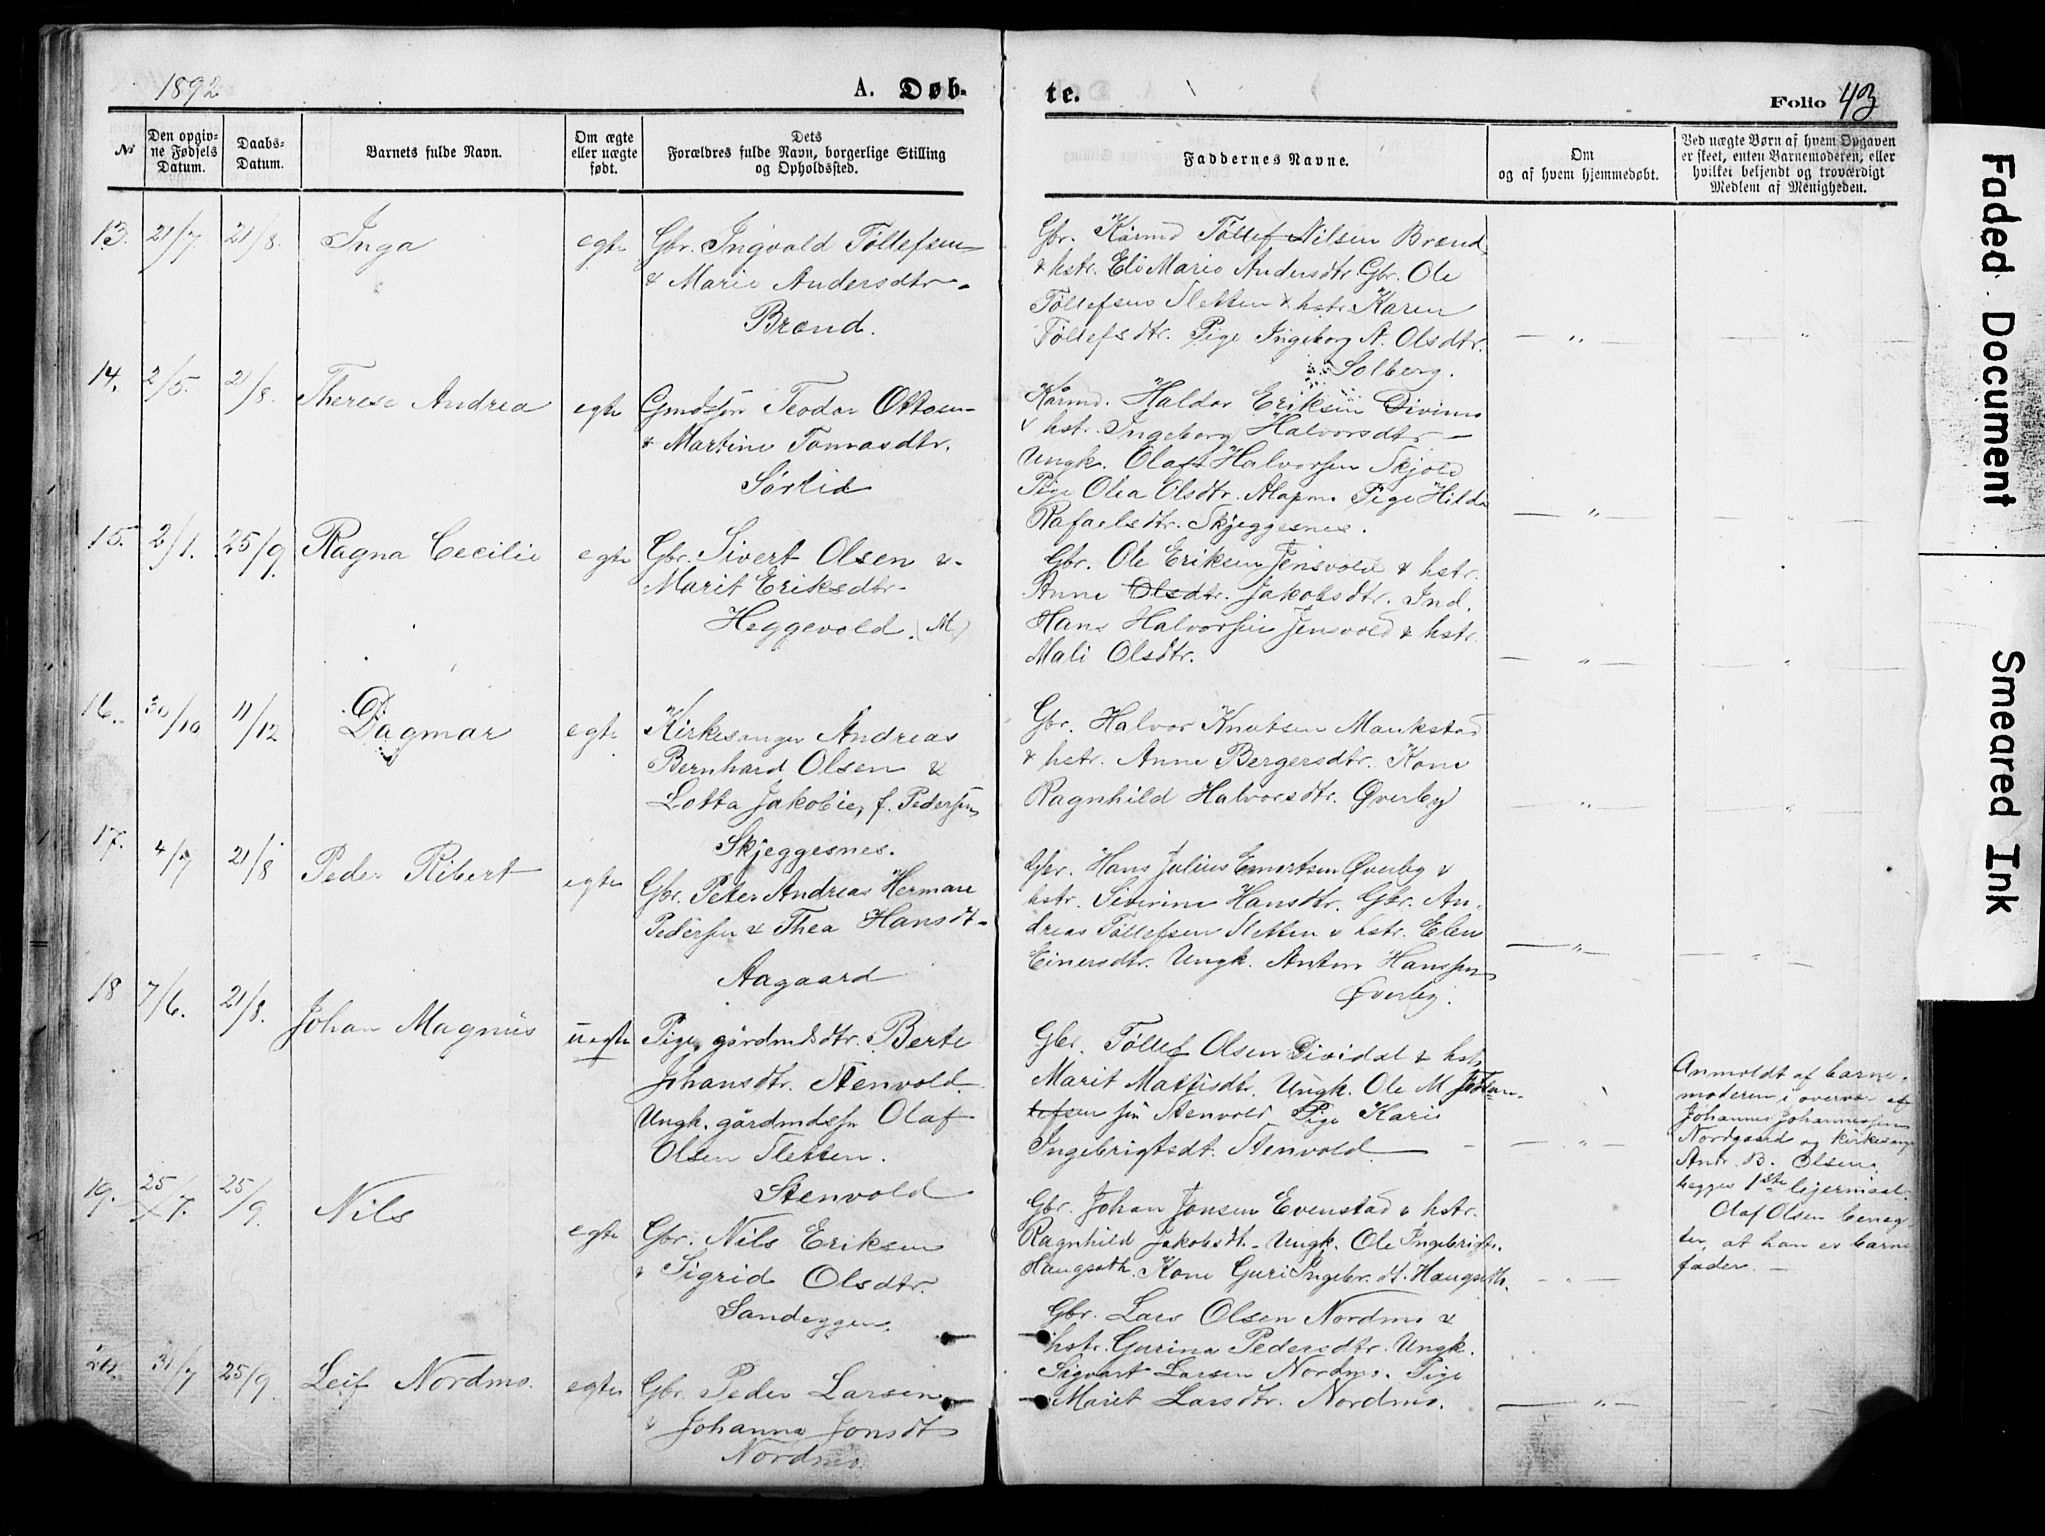 1892
A. Døb-
te.
Folio 43
№
Den opgiv-
ne Fødsels
Datum.
Daabs-
Datum.
Barnets fulde Navn.
Om ægte
eller uægte
født.
Dets
Forældres fulde Navn, borgerlige Stilling
og Opholdssted.
Faddernes Navne.
Om
og af hvem hjemmedøbt.
Ved uægte Børn af hvem Opgaven
er skeet, enten Barnemoderen, eller
hvilket bekjendt og troværdigt
Medlem af Menigheden.
13. 21/7 21/8. Inga egte Gbr. Ingvald Tøllefsen
& Marie Andersdtr.
Brænd.
Gbr. Kårmd Tøllef Nilsen Brænd
& hstr. Eli Marie Andersdtr. Gbr. Ole
Tøllefsen Sletten & hstr. Karen
Tøllefsdtr. Pige Ingeborg A. Olsdtr.
Solberg.
— " —
14. 2/5. 21/8. Therese Andrea egte Teodor Ottosen
& Martine Tomasdtr.
Sørlid
Kårmd. Haldor Eriksen
& hstr. Ingeborg Halvorsdtr —
Ungk. Olaf Halvorsen Skjold
Pige Olea Olsdtr. Pige Hilda
Rafaelsdtr. Skjeggesnes.
— " —
15. 2/1. 25/9. Ragna Cecilie egte Gbr. Sivert Olsen &
Marit Eriksdtr.
Heggevold. (M)
Gbr. Ole Eriksen Jensvold & hstr.
Anne Olsdtr. Jakobsdtr. Ind.
Hans Halvorsen Jensvold & hstr.
Mali Olsdtr.
— " —
16. 30/10 11/12 Dagmar egte Kirkesanger Andreas
Bernhard Olsen &
Lotta Jakobie, f. Pedersen
Skjeggesnes.
Gbr. Halvor Knutsen Moukstad
& hstr. Anne Bergersdtr. Kone
Ragnhild Halvorsdtr. Øverby
— " —
17. 4/7 21/8 Peder Ribert egte Gbr. Peter Andreas Herman
Pedersen & Thea Hansdt.
Aagaard
Gbr. Hans Julius Overby &
hstr. Sivirine Hansdtr. Gbr. An-
dreas Tøllefsen Sletten & hstr. Elen
Einersdtr. Ungk. Anton Hanssen
Øverby.
— " —
18 7/6. 21/8. Johan Magnus uegte Pige, gårdmdsdtr. Berte
Johansdtr. Stenvold.
Ungk. gårdmdsn Olaf
Olsen Sletten.
Stenvold
Gbr. Tøllef Olsen Dividal & hstr
Marit Mattisdtr. Ungk. Ole M
Stenvold Pige Kari
Ingebrigtsdt. Stenvold
— " —
Anmeldt af barne-
moderen i overvær af
Johannes Johannessen
Nordgaard og kirkesanger
Andr. B. Olsen,
begges 1ste lejermaal.
Olaf Olsen beneg-
ter, at han er barne
fader. —
19. 25/7. 25/9. Nils egte Gbr. Nils Eriksen
& Sigrid Olsdtr.
Sandeggen.
Gbr. Johan Jonsen Evenstad & hstr.
Ragnhild Jakobsdt. Ungk. Ole Ingebrigts.
Haugseth. Kone Guri Ingebr.dt. Haugseth.
— " —
20. 31/7 25/9 Leif Nordmo. egte Gbr. Peder Larsen
& Johanna Jonsdt
Nordmo.
Gbr. Lars Olsen Nordmo &
hstr. Gurina Pedersdtr. Ungk.
Sigvart Larsen Nordmo. Pige
Marit Larsdtr. Nordmo.
— " —
Faded Document
Smeared Ink